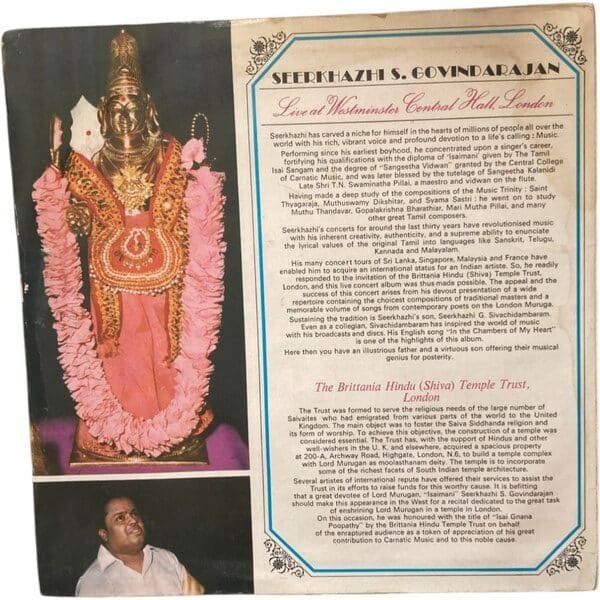 SEERKHAZHI S. GOVINDARAJAN
Live at Westminster Central Hall, London
Seerkhazhi has carved a niche for himself in the hearts of millions of people all over the
world with his rich, vibrant voice and profound devotion to a life's calling: Music.
Performing since his earliest boyhood, he concentrated upon a singer's career,
fortifying his qualifications with the diploma of 'Isaimani' given by The Tamil
Isai Sangam and the degree of "Sangeetha Vidwan" granted by the Central College
of Carnatic Music, and was later blessed by the tutelage of Sangeetha Kalanidi
Late Shri T.N. Swaminatha Pillai, a maestro and vidwan on the flute.
Having made a deep study of the compositions of the Music Trinity : Saint
Thyagaraja, Muthuswamy Dikshitar, and Syama Sastri : he went on to study
Muthu Thandavar, Gopalakrishna Bharathiar, Mari Mutha Pillai, and many
other great Tamil composers.
Seerkhazhi's concerts for around the last thirty years have revolutionised music
with his inherent creativity, authenticity, and a supreme ability to enunciate
the lyrical values of the original Tamil into languages like Sanskrit, Telugu,
Kannada and Malayalam.
His many concert tours of Sri Lanka, Singapore, Malaysia and France have
enabled him to acquire an international status for an Indian artiste. So, he readily
responded to the invitation of the Brittania Hindu (Shiva) Temple Trust,
London, and this live concert album was thus made possible. The appeal and the
success of this concert arises from his devout presentation of a wide
repertoire containing the choicest compositions of traditional masters and a
memorable volume of songs from contemporary poets on the London Muruga.
Sustaining the tradition is Seerkhazhi's son, Seerkhazhi G. Sivachidambaram.
Even as a collegian, Sivachidambaram has inspired the world of music
with his broadcasts and discs. His English song "In the Chambers of My Heart"
is one of the highlights of this album.
Here then you have an illustrious father and a virtuous son offering their musical
genius for posterity.
The Brittania Hindu (Shiva) Temple Trust,
London
The Trust was formed to serve the religious needs of the large number of
Saivaites who had emigrated from various parts of the world to the United
Kingdom. The main object was to foster the Saiva Siddhanda religion and
its form of worship. To achieve this objective, the construction of a temple was
considered essential. The Trust has, with the support of Hindus and other
well-wishers in the U. K. and elsewhere, acquired a spacious property
at 200-A, Archway Road, Highgate, London, N.6, to build a temple complex
with Lord Murugan as moolasthanam deity. The temple is to incorporate
some of the richest facets of South Indian temple architecture.
Several artistes of international repute have offered their services to assist the
Trust in its efforts to raise funds for this worthy cause. It is befitting
that a great devotee of Lord Murugan, "Isaimani" Seerkhazhi S. Govindarajan
should make this appearance in the West for a recital dedicated to the great task
of enshrining Lord Murugan in a temple in London.
On this occasion, he was honoured with the title of "Isai Gnana
Poopathy" by the Brittania Hindu Temple Trust on behalf
of the enraptured audience as a token of appreciation of his great
contribution to Carnatic Music and to this noble cause.